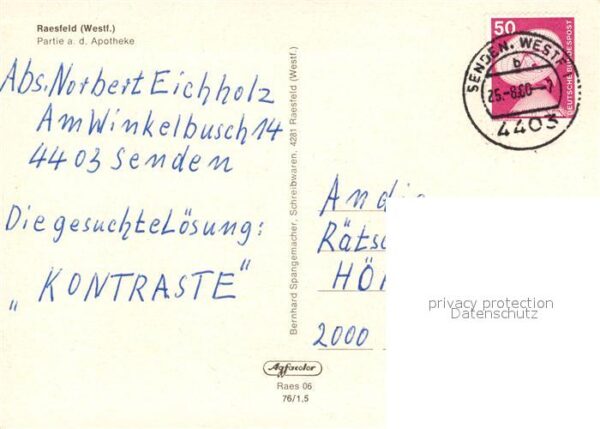 Raesfeld (Westf.)
Partie a. d. Apotheke
Abs. Norbert Eichholz
Am Winkelbusch 14
4403 Senden
Die gesuchte Lösung:
„KONTRASTE"
Bernhard Spangemacher, Schreibwaren, 4281 Raesfeld (Westf.)
Agfacolor
Raes 06
76/1.5
50
DEUTSCHE BUNDESPOST
SENDEN, WESTF
b
25.-8.80--7
4403
An die
Rätse
HÖR
2000
privacy protection
Datenschutz